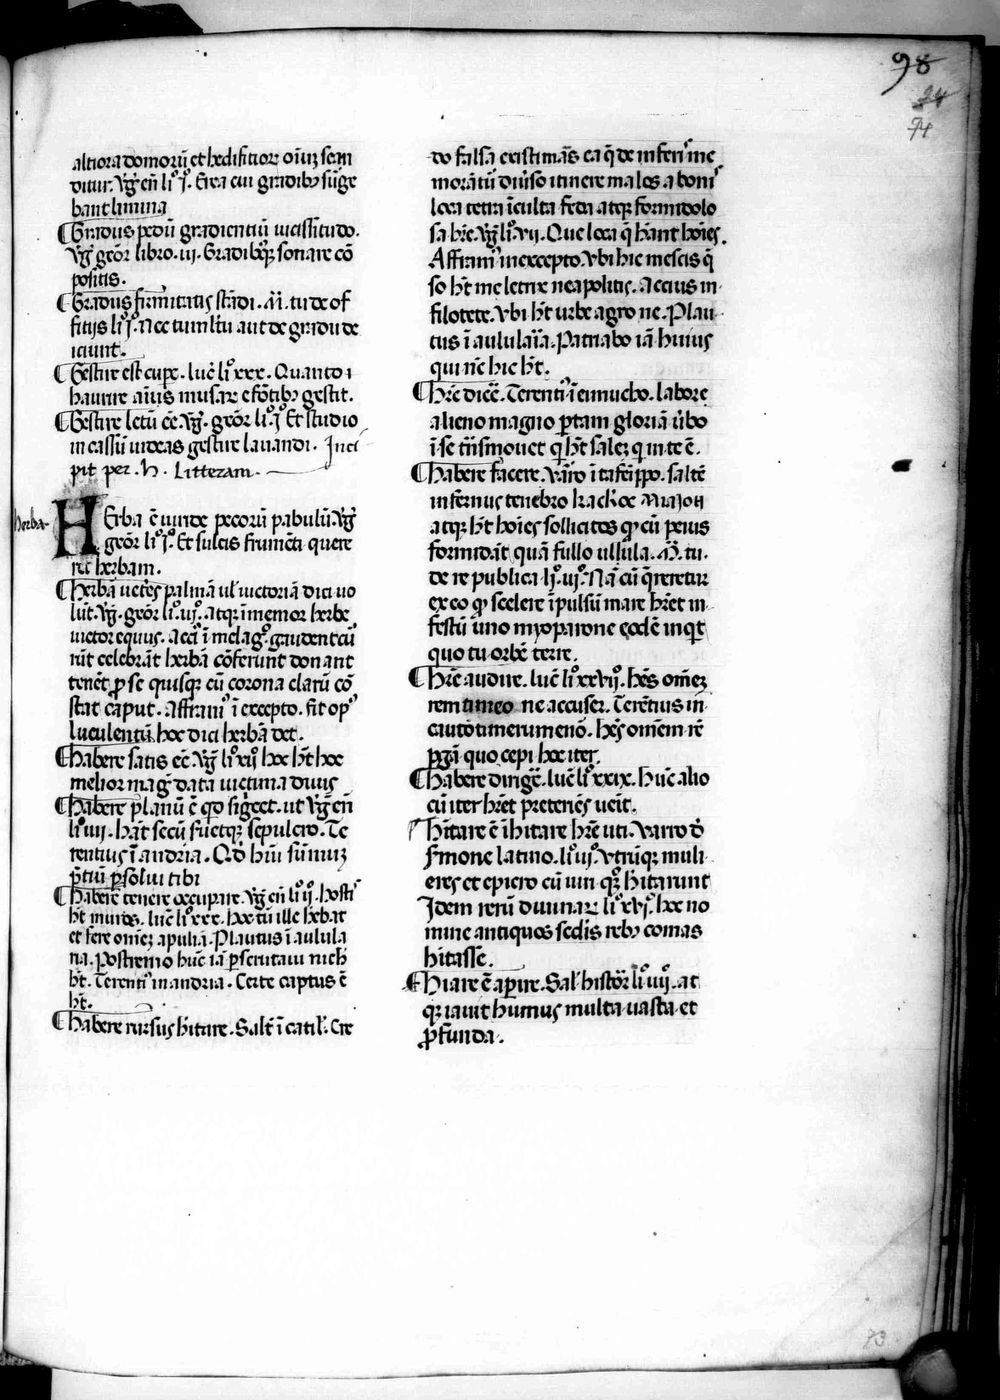 98
74
altiora domorū et hedifitiorꝫ oīuꝫ scan
ditur. Vg̃ eñ li° j°. Erea cui gradibꝫ surge
bant limina
¶ Gradus pedū gradientiū uicissitudo.
Vg̃ geōr libro .iij. Gradibꝫqꝫ sonare cō
positis.
¶ Gradus firmitatis stādi. M. tu de of
fitijs li° j°. Nec tumltu aut de gradu de
iciunt.
¶ Gestire est cupe. lucꝰ li° xxx. Quanto i
haurire aīus musare e fōtibꝫ gestit.
¶ Gestire letū eē. Vg̃. geōr li° j° Et studio
in cassū uideas gestire lauandi. Inci
pit per .H. Litteram.
herba
HErba ē uiride pecorū pabulū. Vg̃
geōr li° j°. Et sulcis frumēti quere
ret herbam.
¶ Herbā ueteꝭ palmā ul' uictoriā dici uo
lūt. Vg̃. geōr li° iij°. Atqꝫ īmemor herbe
uictor equus. Accꝰ ī melag°. gaudent cū
rūt celebrāt herbā cōferunt donant
tenēt p̱ se quisqꝫ cū corona clarū cō
stat caput. Affranꝰ ī excepto. fit opꝰ
luculentū hoc dici herbā det.
¶ Habere satis eē. Vg̃ li° xij hoc h̄t hec
melior mag̃ data uictima diuis
¶ Habere planū ē qd sig̃cet. ut Vg̃ eñ
li° iiij. hāt secū seruetqꝫ sepulcro. Te
rentius ī andria. Qd hui sumuꝫ
p̄tiū persolui tibi
¶ Habere tenere occupare. Vg̃ eñ li° ij°. hostꝭ
h̄t muros. lucꝰ li° xxx. hoc tū ille hēbat
et fere omeꝫ apuliā. Plautus ī aulula
ria. Postremo hūc iā perscrutaui nich
h̄t. Terentꝰ in andria. Certe captus ē
h̄t.
¶ Habere rursus hitare. Salꝰ ī catil'. Cre
do falsa existimās ea q̄ de inferiꝭ me
morātur diuiso itinere malos a boniꝭ
loca tetra īculta feda atqꝫ formidolo
sa hre. Vg̃ li° vij. Que loca q̄ hānt hoīes.
Affranꝰ in excepto. Vbi hic mescis q̄
so h̄t meletrix neapolitꝭ. Accius in
filotete. Vbi h̄t urbe agro ne. Plau
tus ī aulularia. Patriabo iā huius
qui nūc hic h̄t.
¶ Hr̄e dicē. Terentꝰ ī eunucho. labore
alieno magno partam gloriā ūbo
ī se trāsmouet q̱ h̄t saleꝫ q̱ in te ē.
¶ Habere facere. Varro ī tafeīppo. saltē
infernus tenebro
atqꝫ h̄t hoīes sollicitos qꝫ cū peius
formidāt quā fullo ullula. M. tu.
de re publica li° iij°. Nā cū q̄reretur
ex eo qꝫ scelere īpulsū mare hr̄et in
festū uno myoparone eodē inquit
quo tu orbē terre.
¶ Hr̄e audire. lucꝰ li° xxvij°. hēs omeꝫ
rem timeo ne accuser. Terētius in
eauto timerumenō. hēs omem rē
perga quo cepi hoc iter.
¶ Habere dirigē. lucꝰ li° xxix. Hūc alio
cū iter hr̄et pretereūs uenit.
¶ Hitare ē ihitare hr̄e uti. Varro d'
smone latino. li° vj°. Vtrūqꝫ muli
eres et epicro cū uiri qꝫ hitarunt
Idem rerū diuinarꝫ li° xvj°. hoc no
mine antiquos sedis rebꝫ comas
hitasse.
¶ Hiare ē aperire. Sal' histor li° iiij°. at
qꝫ iauit humus multa uasta et
p̱funda.
73